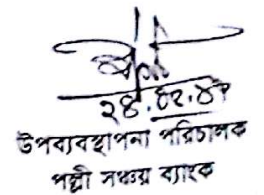 উপব্যবস্থাপনা পরিচালক
পল্লী সঞ্চয় ব্যাংক